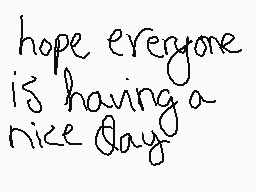 hope everyone
is having a
nice day